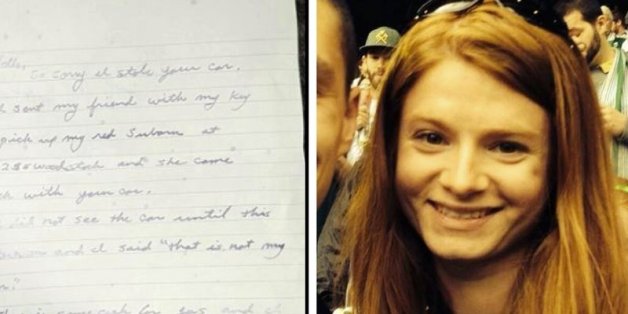 Hello,
So sorry I stole your car.
sent my friend with my key
pick up my red Subaru at
Woodstock and she came
with your car.
did not see the car until this
and I said "that is not my
for gas and